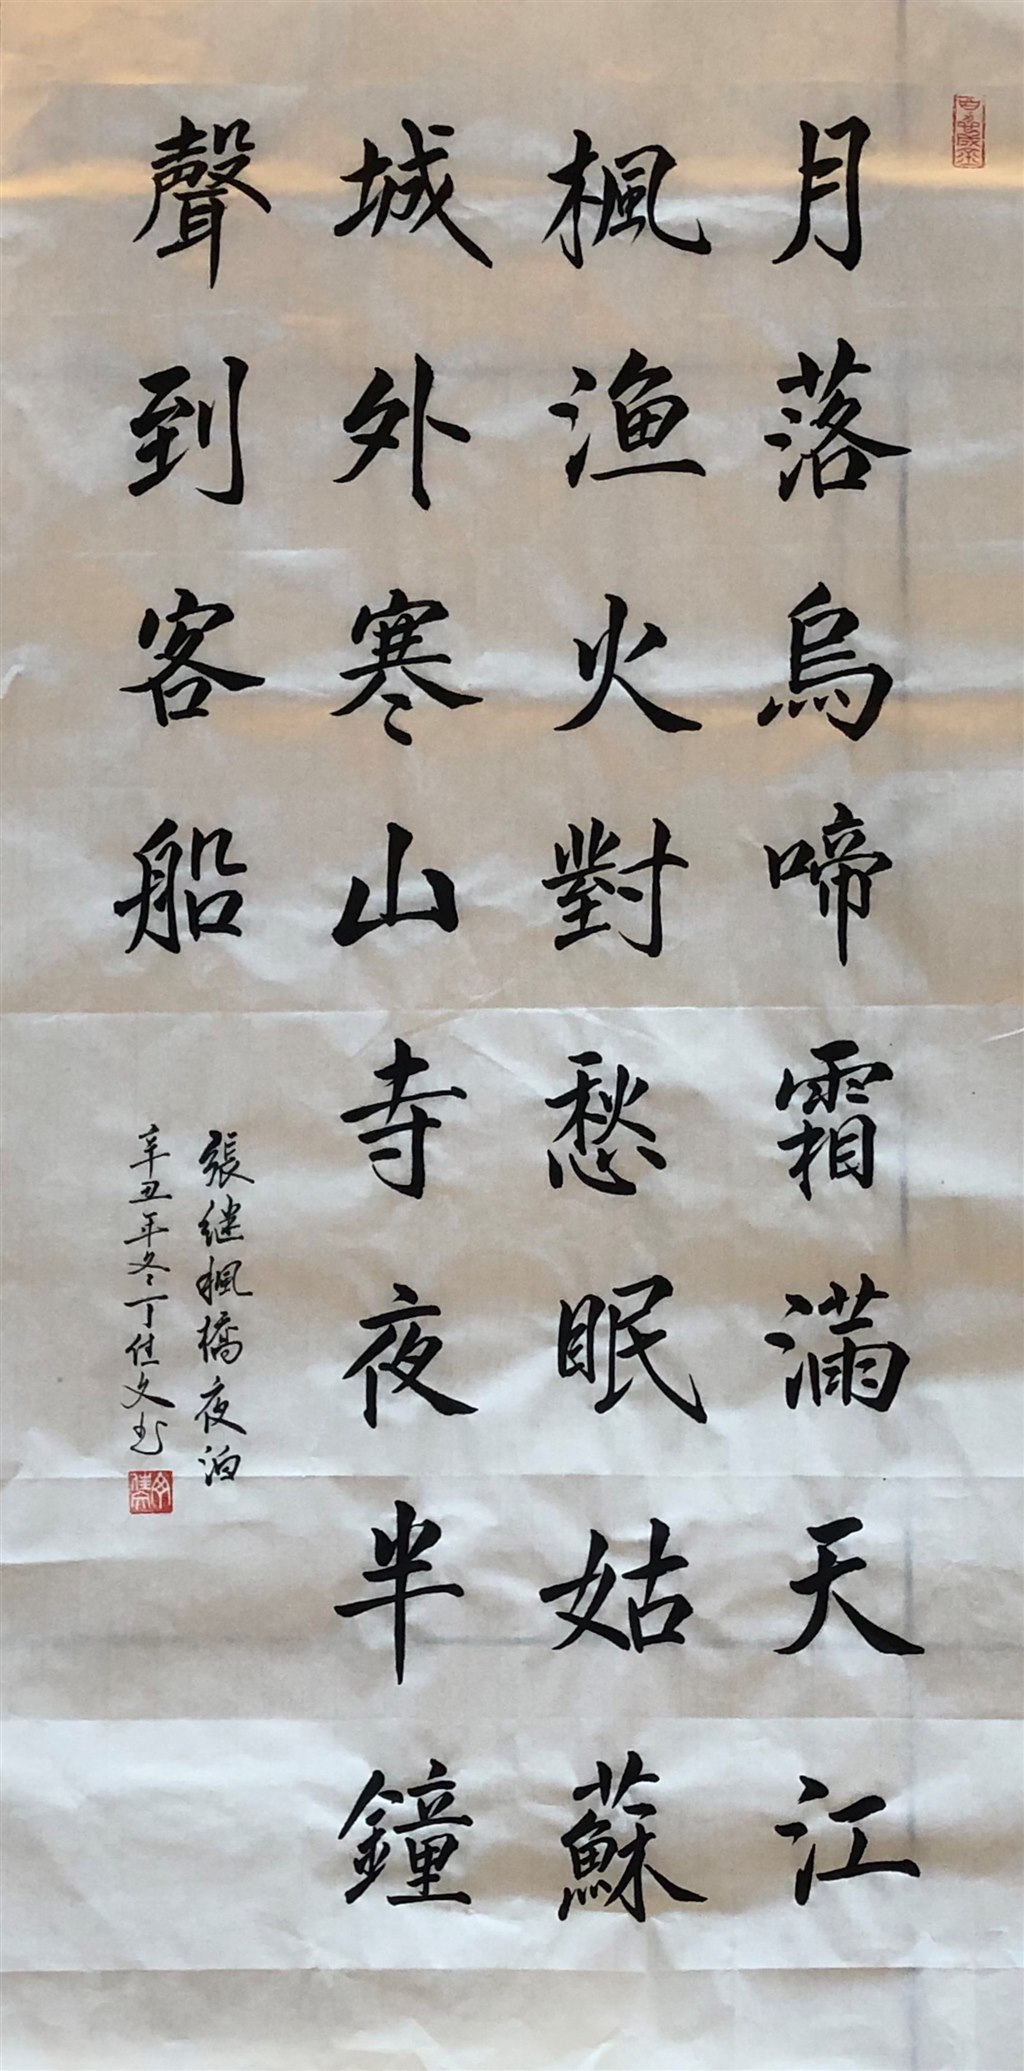 月落烏啼霜滿天江
楓渔火對愁眠姑蘇
城外寒山寺夜半鐘
聲到客船
張继楓橋夜泊
辛丑年冬丁佳文书